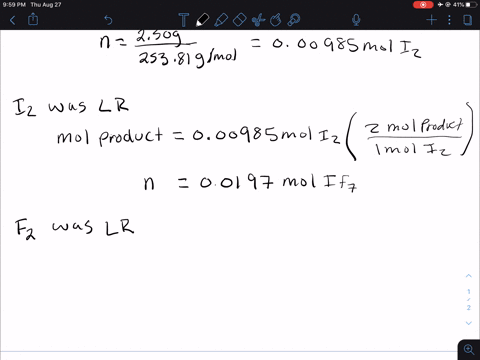 9:59 PM Thu Aug 27
41%
n = 2.50g / 253.81 g/mol = 0.00985 mol I₂
I₂ was LR
mol product = 0.00985 mol I₂ (2 mol Product / 1 mol I₂)
n = 0.0197 mol If₇
F₂ was LR
1
2